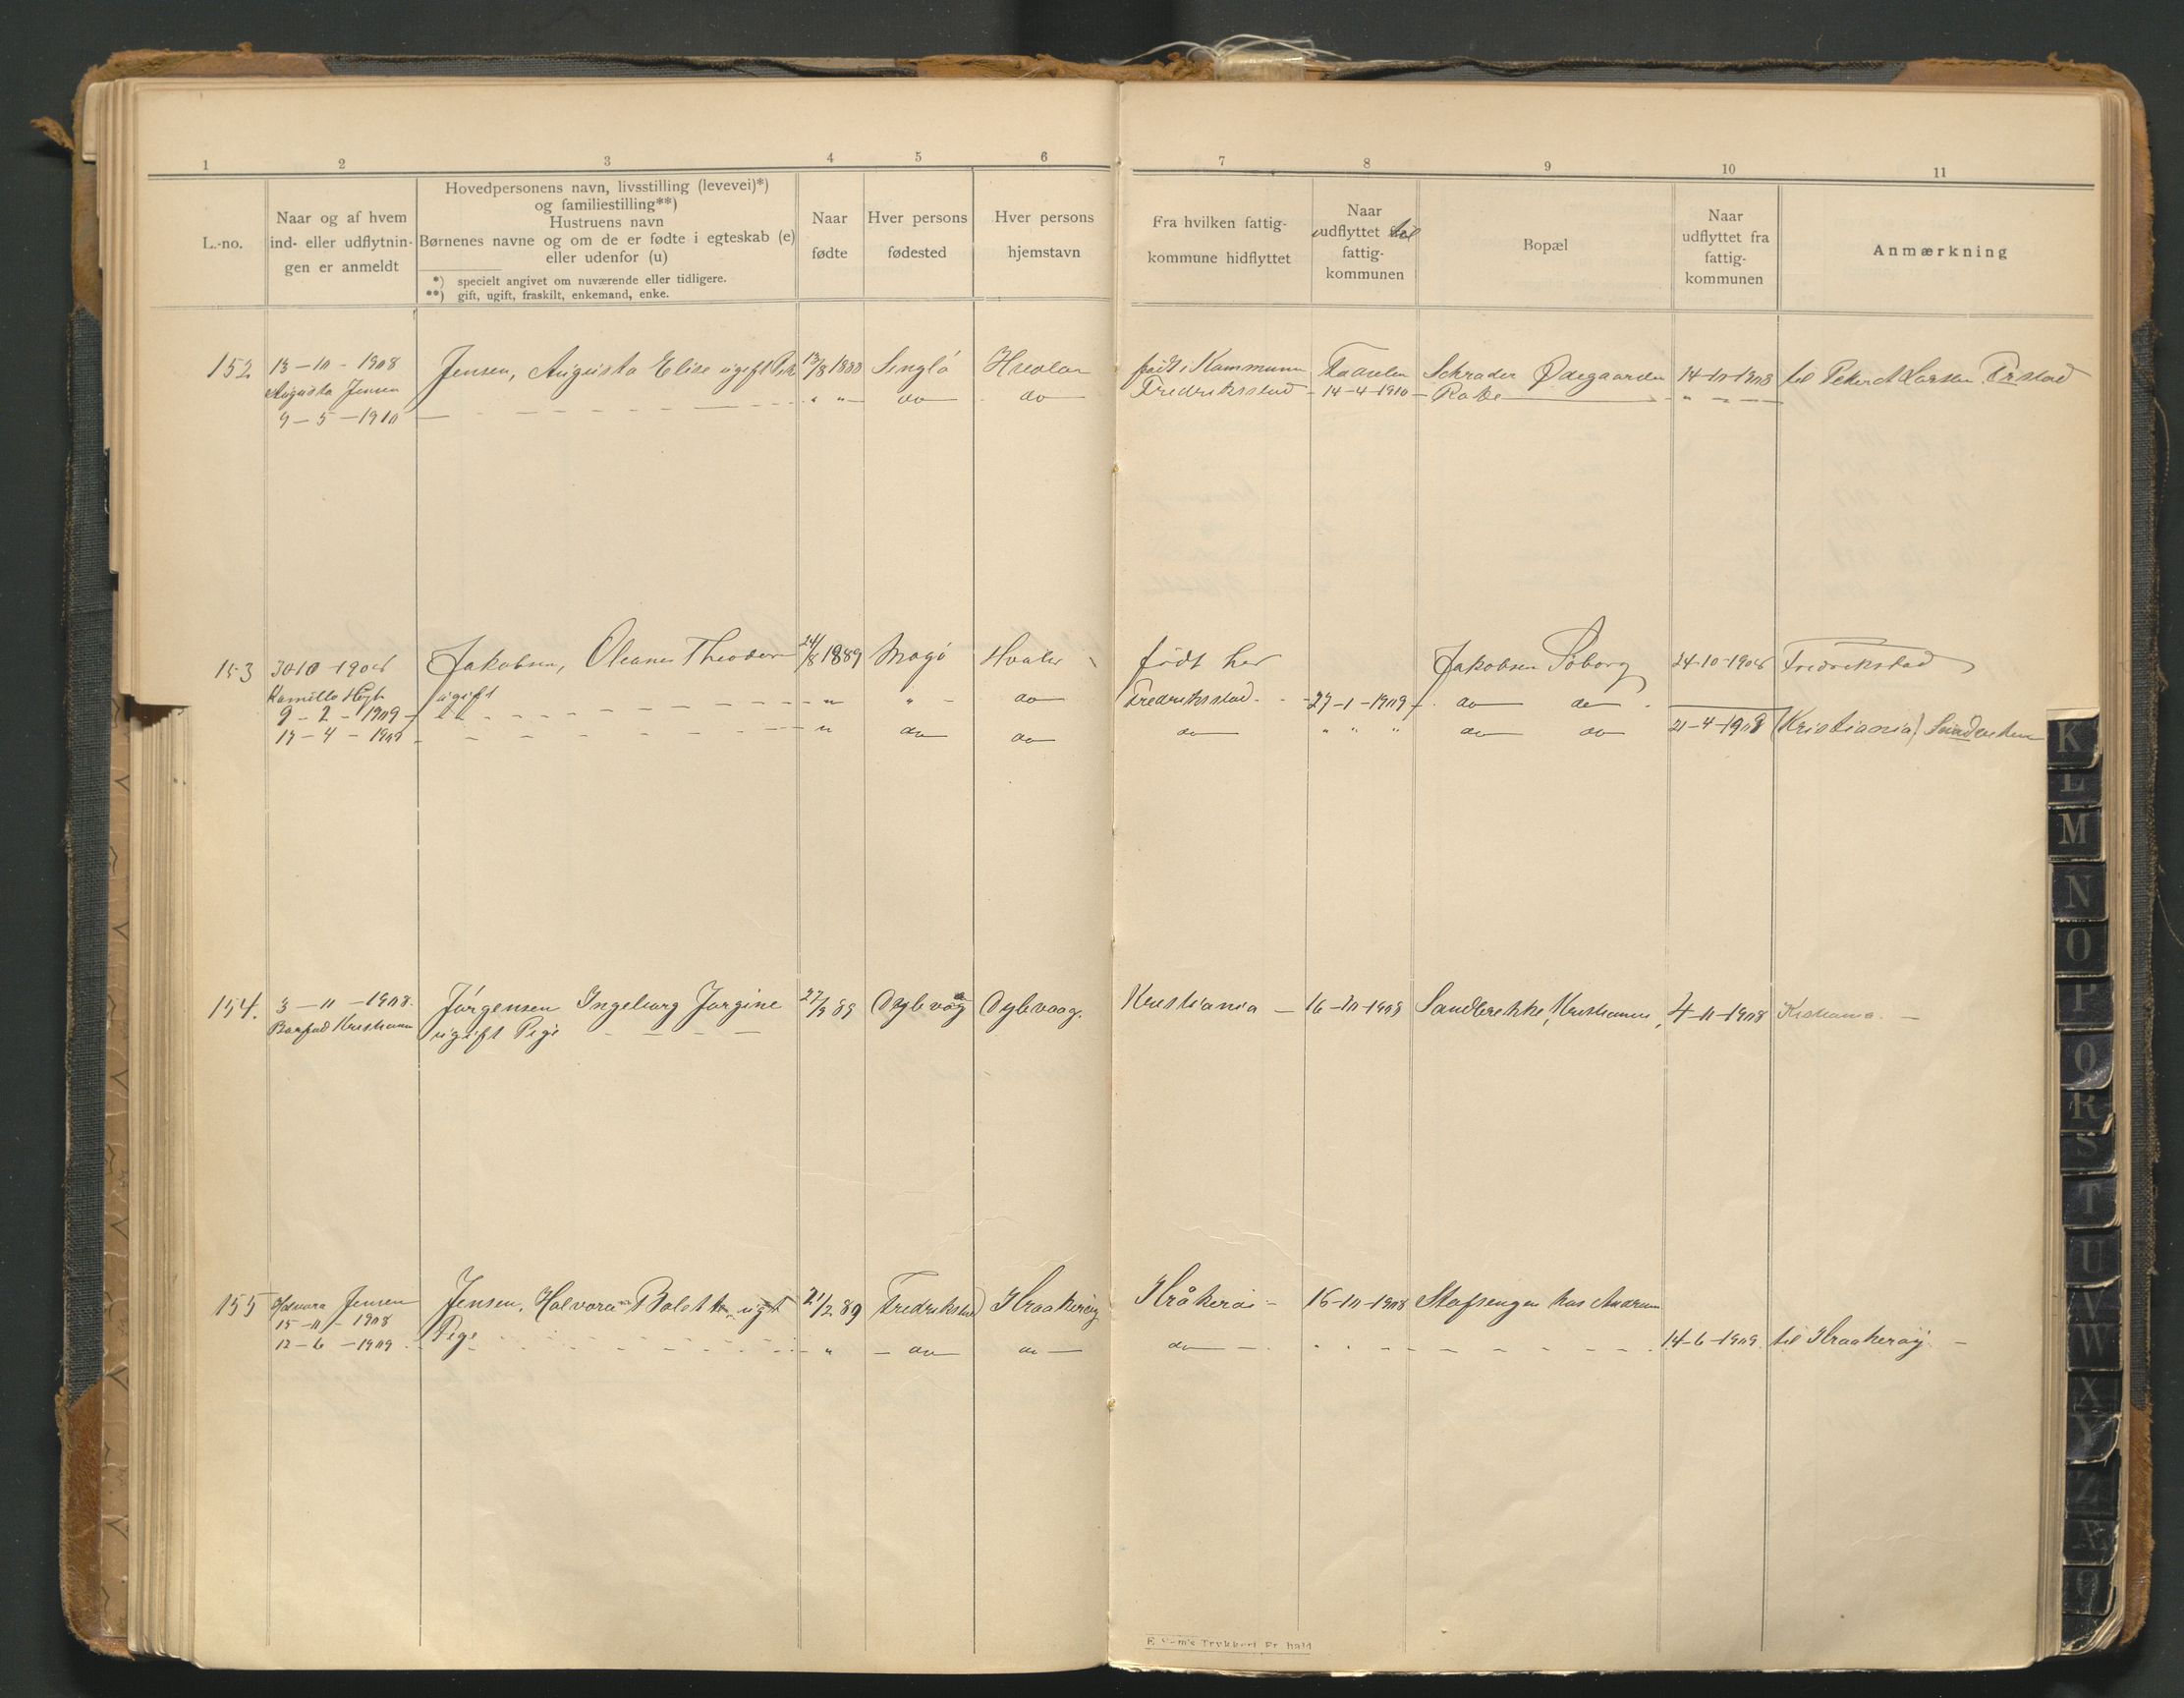 1 2 3 4 5 6 7 8 9 10 11
L.-no.
Naar og af hvem
ind- eller udflytnin-
gen er anmeldt
Hovedpersonens navn, livsstilling (levevei)*)
og familiestilling**)
Hustruens navn
Børnenes navne og om de er fødte i egteskab (e)
eller udenfor (u)
*) specielt angivet om nuværende eller tidligere.
**) gift, ugift, fraskilt, enkemand, enke.
Naar
fødte
Hver persons
fødested
Hver persons
hjemstavn
Fra hvilken fattig-
kommune hidflyttet
Naar
udflyttet til
fattig-
kommunen
Bopæl
Naar
udflyttet fra
fattig-
kommunen
Anmærkning
152 13-11-1908 Jensen, Augusta Elise ugift 13/8 1888 Singlö Hvaler født i Kommunen Schrader Ødegaarden 14-11-1908 til Peder Larsen
Augusta Jensen " " do do Fredriksstad 14-4-1910 " "
9-5-1910
153 30-10-1908 Jakobsen, Oleanes Theodor 24/8 1889 Hvaler født her Jakobsen Søborg 24-10-1908 Fredrikstad
Kamillo ugift " " do Fredriksstad 27-1-1909 do do
9-2-1909
19-4-1909 " do do do " " " do do 21-4-1908 (Kristiania)
154. 3-11-1908. Jørgensen Ingeborg Jørgine 27/3 89 Dybvåg Dybvaag. Kristiania 16-10-1908 Sandbrekke, 4-11-1908
ugift Pige
155 Halvara Jensen Jensen, Halvara Bolette ugt 21/2 89 Fredrikstad Kraakerøy Kråkerøi 16-11-1908 hos
15-11-1908 Pige
12-6-1909 " do do do 14-6-1909 til Kraakerøy
E. Sem's Trykkeri Fr.hald
K
L
M
N
O
P
Q
R
S
T
U
V
W
X
Y
Z
Æ
Ø